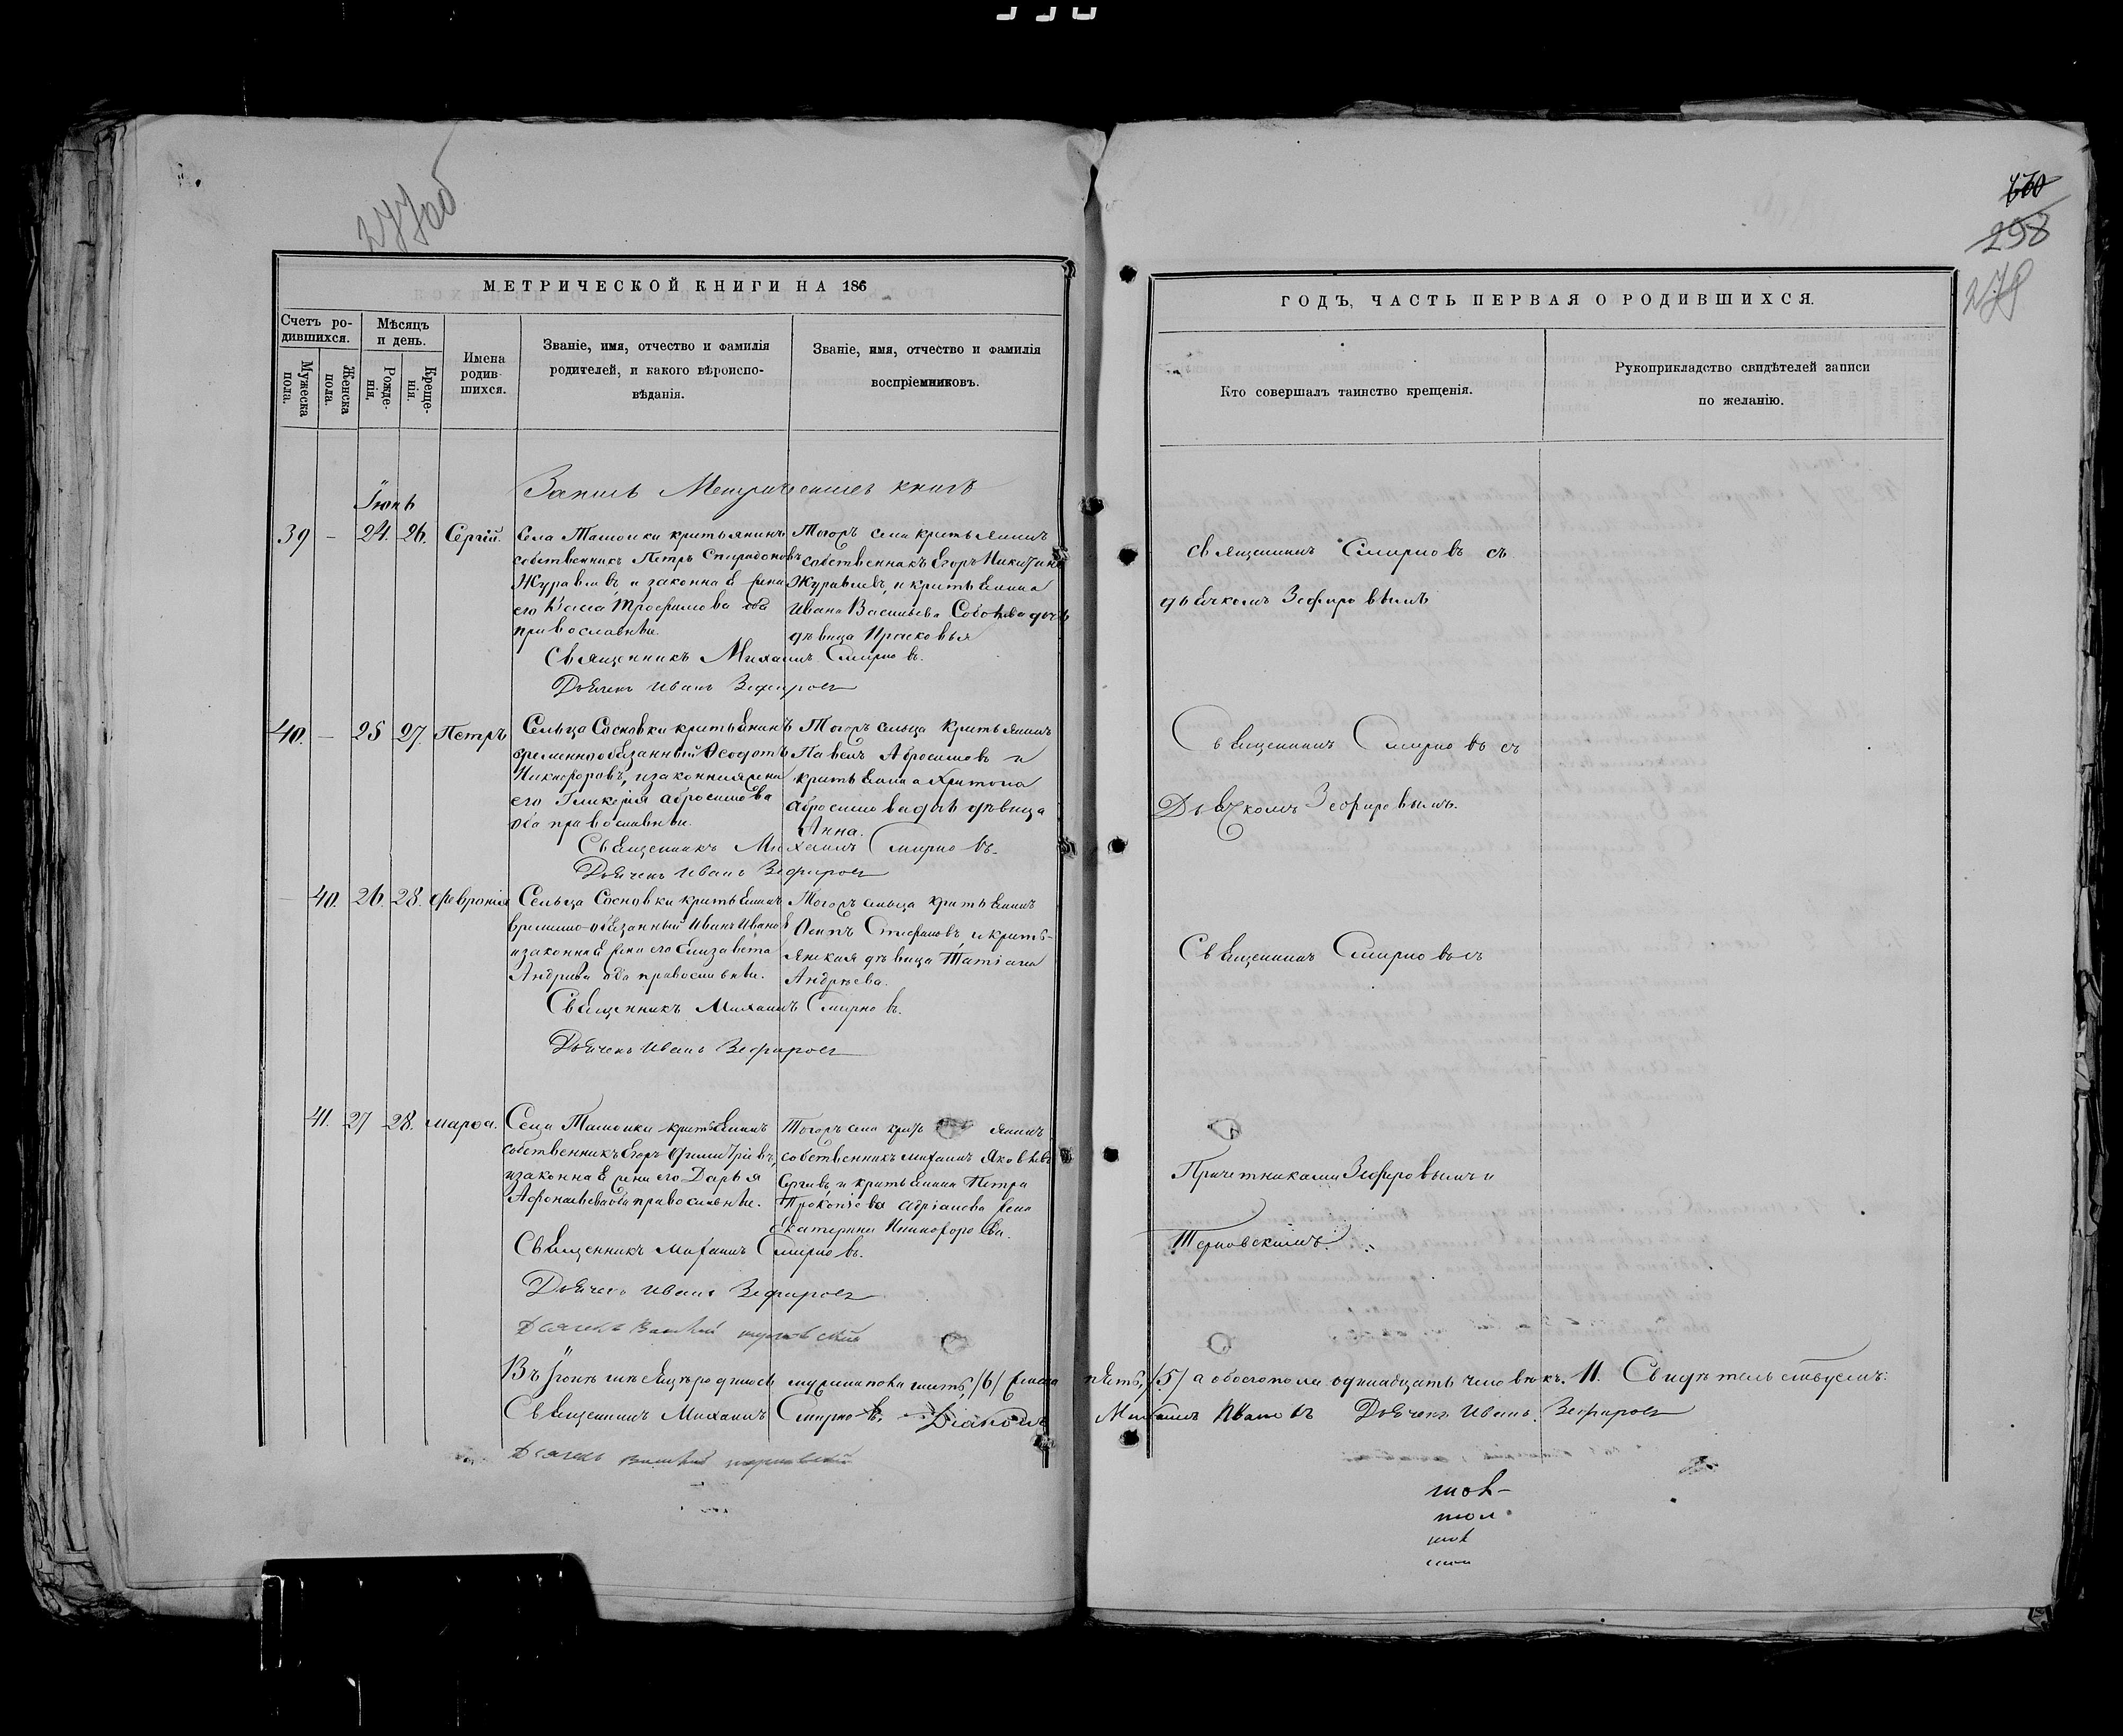 277об
298
279
МЕТРИЧЕСКОЙ КНИГИ НА 186
Счетъ ро-
дившихся.
Мужеска
пола.
Женска
пола.
Мѣсяцъ
и день.
Рожде-
нія.
Креще-
нія.
Имена
родив-
шихся.
Званіе, имя, отчество и фамилія
родителей, и какого вѣроиспо-
вѣданія.
Званіе, имя, отчество и фамилія
воспріемниковъ.
ГОДЪ, ЧАСТЬ ПЕРВАЯ О РОДИВШИХСЯ.
Кто совершалъ таинство крещенія.
Рукоприкладство свидѣтелей записи
по желанію.
Запись Метрическихъ книгъ
Іюнь
39 – 24. 26. Сергій.
Села крестьянинъ
собственникъ Петръ Спиридоновъ
Журавлевъ и законная жена
его Трофимова оба
православные.
Тогожъ села крестьянинъ
собственникъ Егоръ Никитинъ
Журавлевъ, и крестьянина
Ивана Васильева дочь
дѣвица Прасковья
Священникъ Михаилъ Смирновъ.
Дьячекъ Иванъ Зефировъ
священникъ Смирновъ съ
дьячкомъ Зефировымъ
40. – 25 27. Петръ
Сельца Сосновки крестьянинъ
временнообязанный Ѳеодотъ
Никифоровъ, и законная жена
его Гликерія Абросимова
оба православные.
Тогожъ сельца крестьянинъ
Павелъ Абросимовъ и
крестьянина
Абросимова дочь дѣвица
Анна.
Священникъ Михаилъ Смирновъ.
Дьячекъ Иванъ Зефировъ
Священникъ Смирновъ съ
Дьячкомъ Зефировымъ.
40. 26. 28. Февронія
Сельца Сосновки крестьянинъ
временно-обязанный Иванъ Ивановъ
и законная жена его Елизавета
Андреева оба православные.
Тогожъ сельца крестьянинъ
Осипъ Стефановъ, и кресть-
янская дѣвица Татіана
Андреева.
Священникъ Михаилъ Смирновъ.
Дьячекъ Иванъ Зефировъ
Священникъ Смирновъ съ
41. 27 28. Марѳа.
Села крестьянинъ
собственникъ Егоръ Дмитріевъ,
и законная жена его Дарья
Афонасьева оба православные.
Тогожъ села кресть янинъ
собственникъ Михаилъ Яковлевъ
и крестьянина Петра
Прокопіева Адріанова жена
Екатерина Никифорова.
Священникъ Михаилъ Смирновъ.
Дьячекъ Иванъ Зефировъ
Причетниками Зефировымъ и
Терновскимъ.
Въ Іюнѣ мѣсяцѣ родилось мужеска пола шесть, /6/ женска пять, /5/ а обоего пола одинадцать человѣкъ. 11. Свидѣтельствуемъ:
Священникъ Михаилъ Смирновъ. Діаконъ Михаилъ Ивановъ Дьячекъ Иванъ Зефировъ